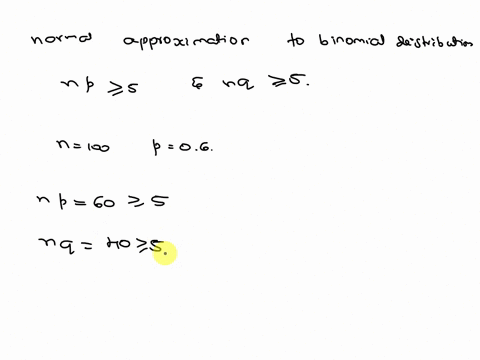 normal approximation to binomial distribution
np ≥5 & nq ≥5.
n=100 p=0.6.
np=60 ≥5
nq = 40≥5.